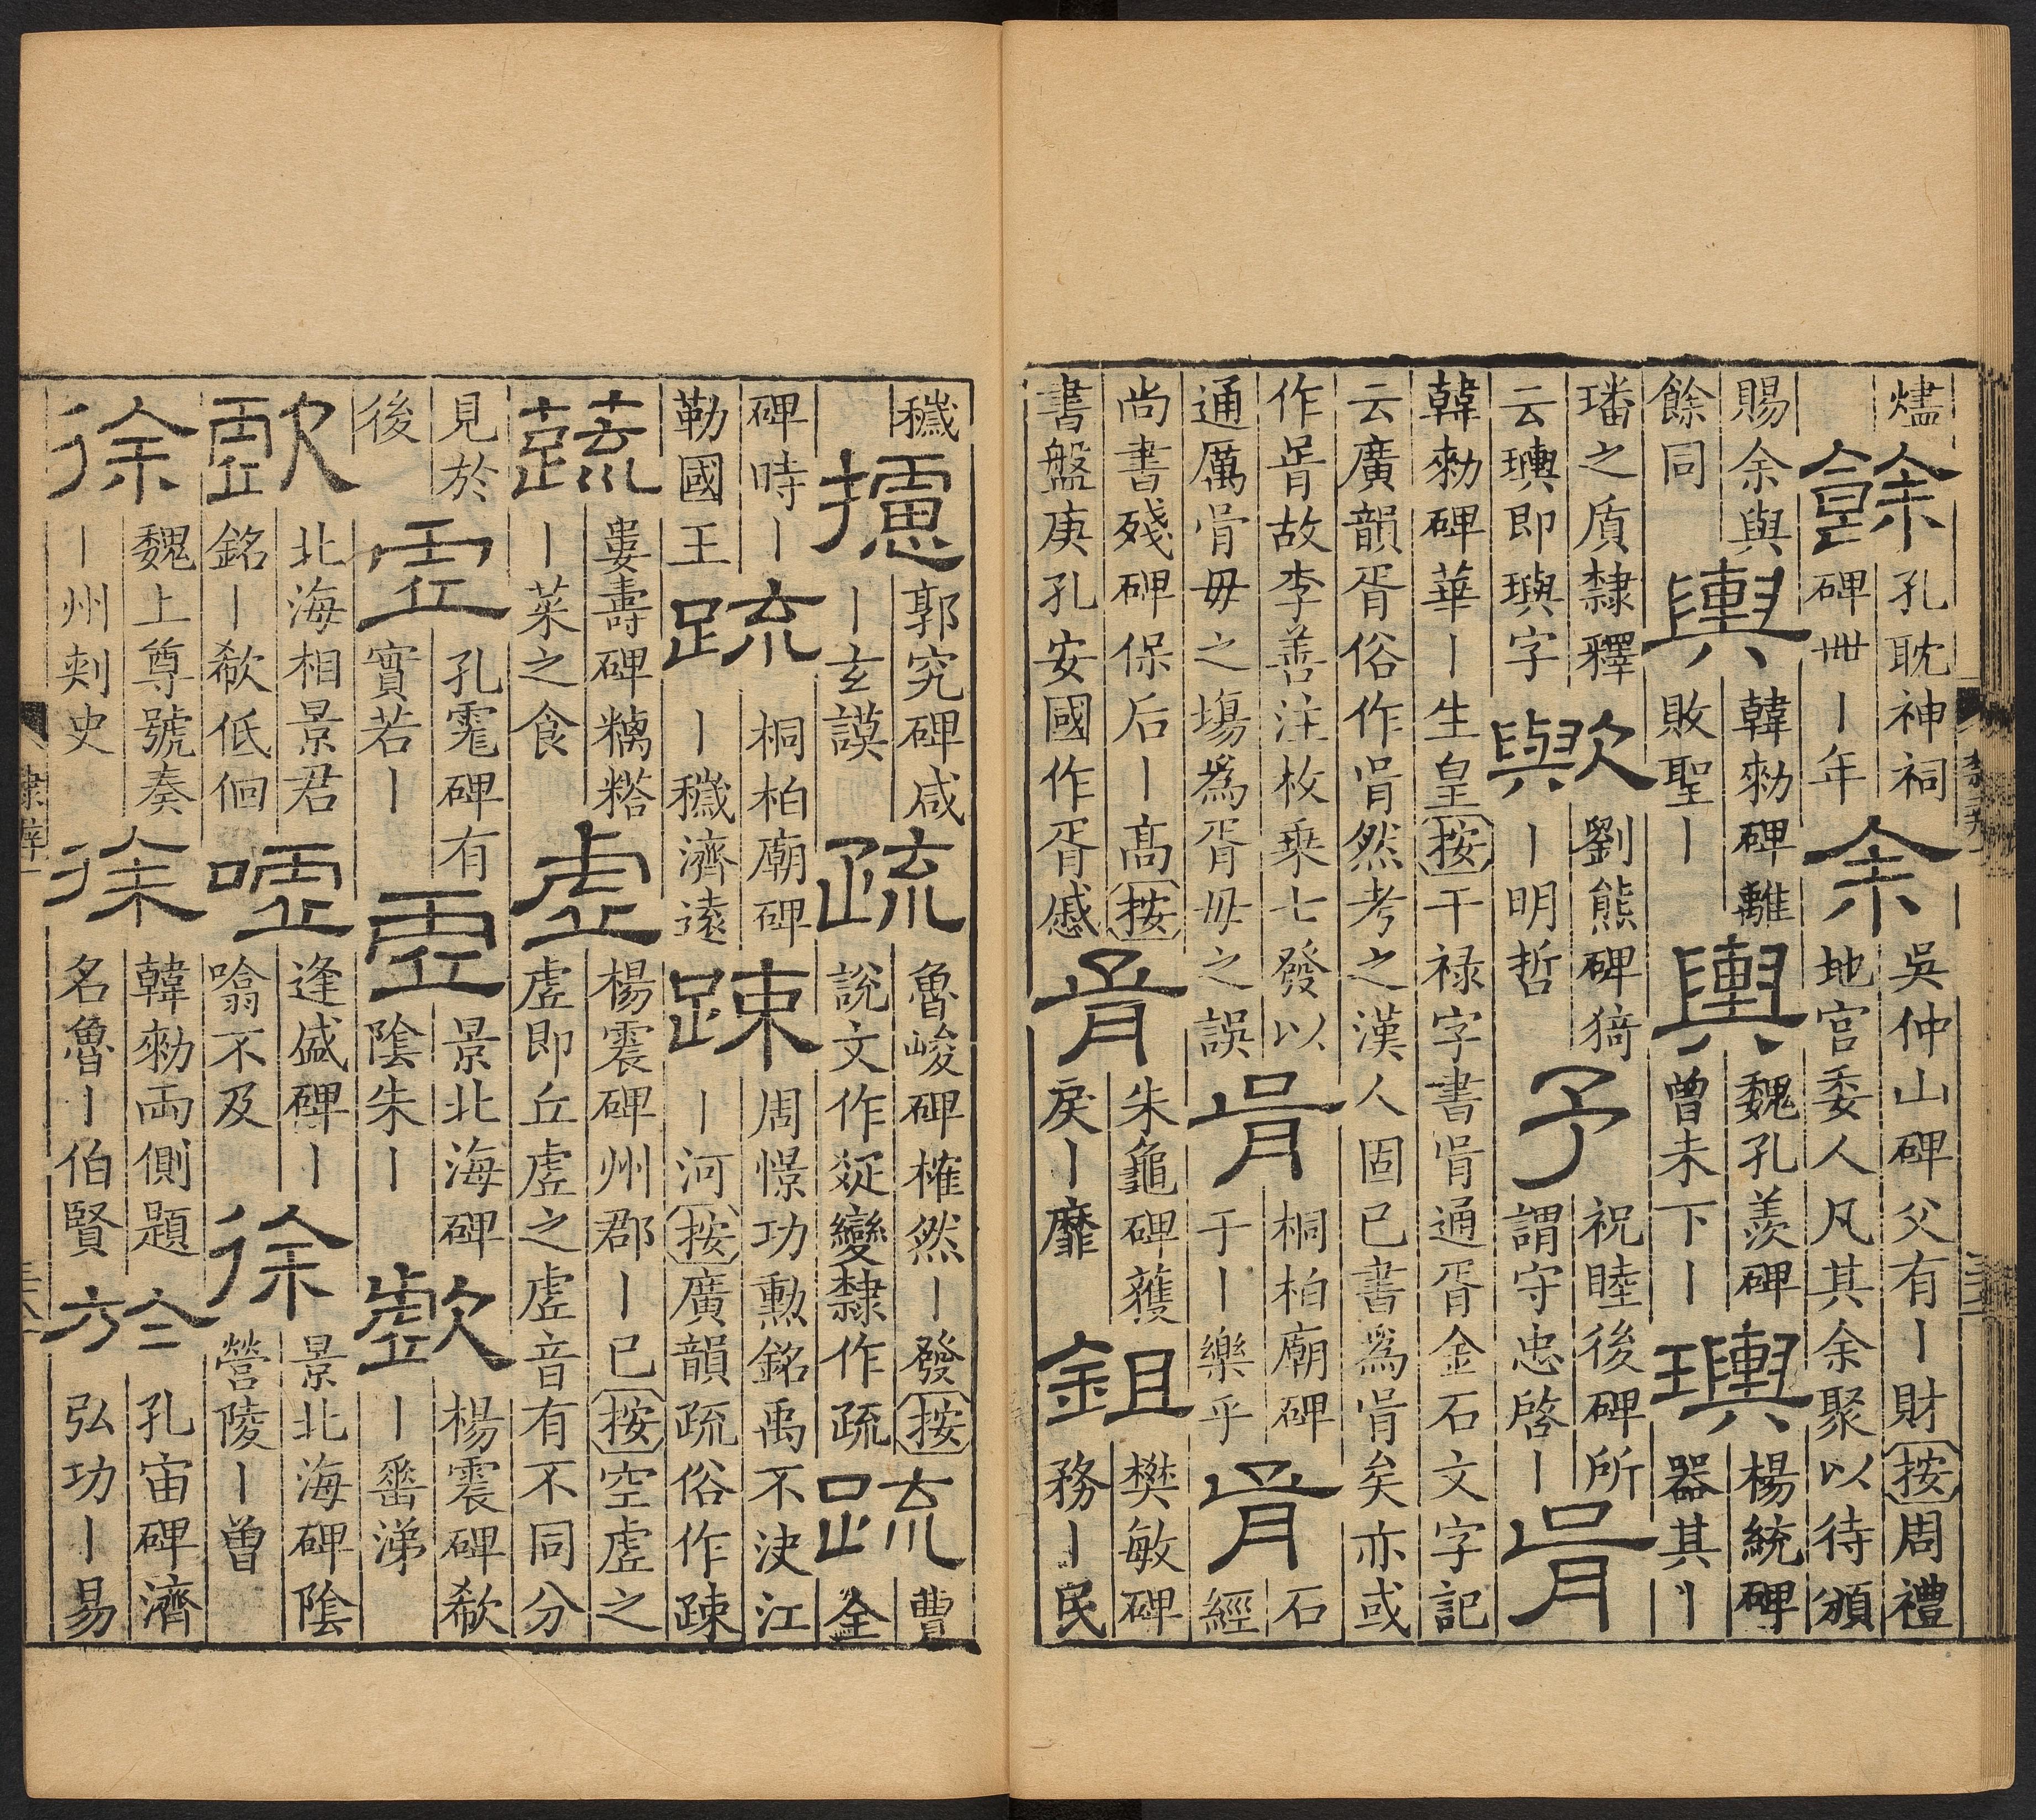 燼
餘
孔耽神祠
碑丗丨年
余
吳仲山碑父有丨財按周禮
地官委人凡其余聚以待頒
賜余與
餘同
輿
韓勑碑離
敗聖丨
輿
魏孔羨碑
曾未下丨
璵
楊統碑
器其丨丨
璠之質隸釋
云璵即璵字
歟
劉熊碑猗
丨明哲
予
祝睦後碑所
謂守忠啓丨
胥
韓勑碑華丨生皇按干禄字書肎通胥金石文字記
云廣韻胥俗作肎然考之漢人固已書爲肎矣亦或
作胥故李善注枚乗七發以
通厲骨毋之塲爲胥毋之誤
胥
桐柏廟碑
于丨樂乎
胥
石
經
尚書殘碑保后丨高按
書盤庚孔安國作胥慼
胥
朱龜碑獲
戾丨靡
鉏
樊敏碑
務丨民
穢
攄
郭究碑咸
丨玄謨
疏
魯峻碑榷然丨發按
說文作𤕟變隸作疏
疏
曹
全
碑時丨
勒國王
疏
桐柏廟碑
丨穢濟遠
疎
周憬功勲銘禹不決江
丨河按廣韻疏俗作疎
蔬
婁壽碑糲
丨菜之食
虛
楊震碑州郡丨已按空虛之
虛即丘虛之虛音有不同分
見於
後
虛
孔霓碑有
實若丨
虛
景北海碑
陰朱丨
歔
楊震碑欷
丨畨涕
歔
北海相景君
銘丨欷低佪
噓
逢盛碑丨
噏不及
徐
景北海碑陰
營陵丨曾
徐
魏上尊號奏
丨州刺史
徐
韓勑兩側題
名魯丨伯賢
於
孔宙碑濟
弘功丨易